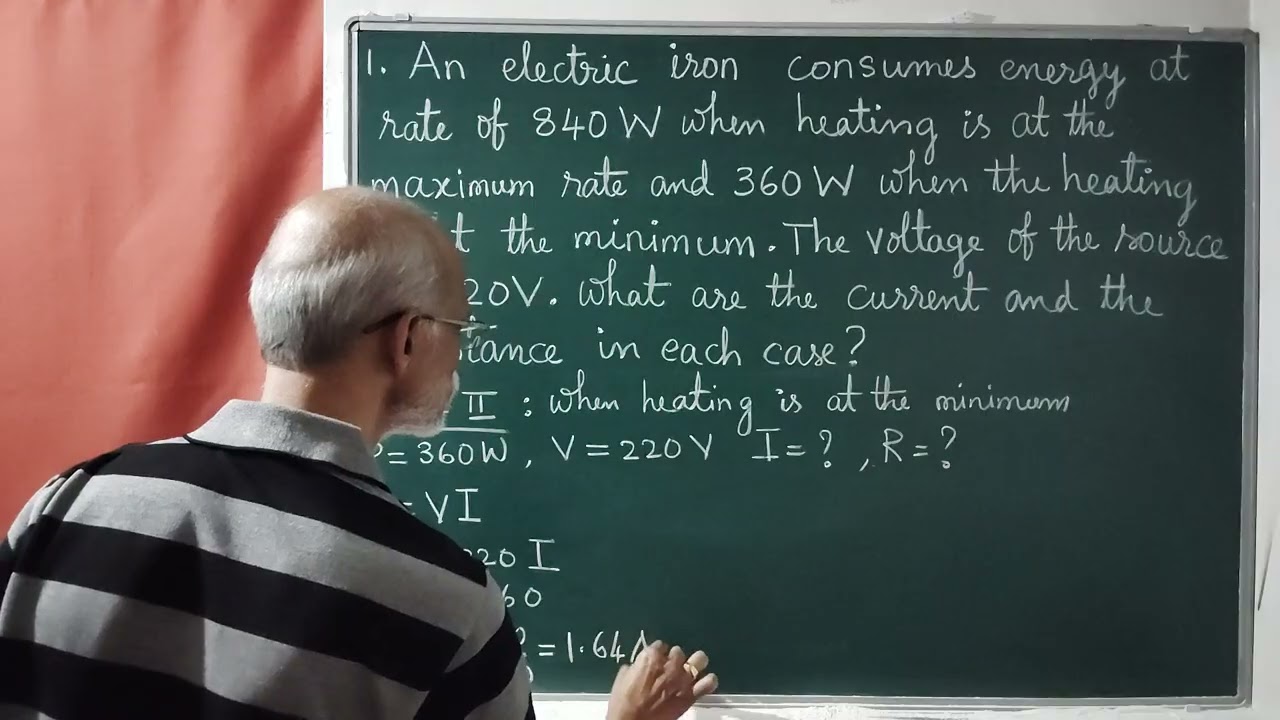 1. An electric iron consumes energy at
rate of 840W when heating is at the
maximum rate and 360W when the heating
the minimum. The voltage of the source
20V. what are the current and the
in each case?
II : when heating is at the minimum
= 360W, V = 220V I = ?, R = ?
= VI
220 I
60
= 1.64A